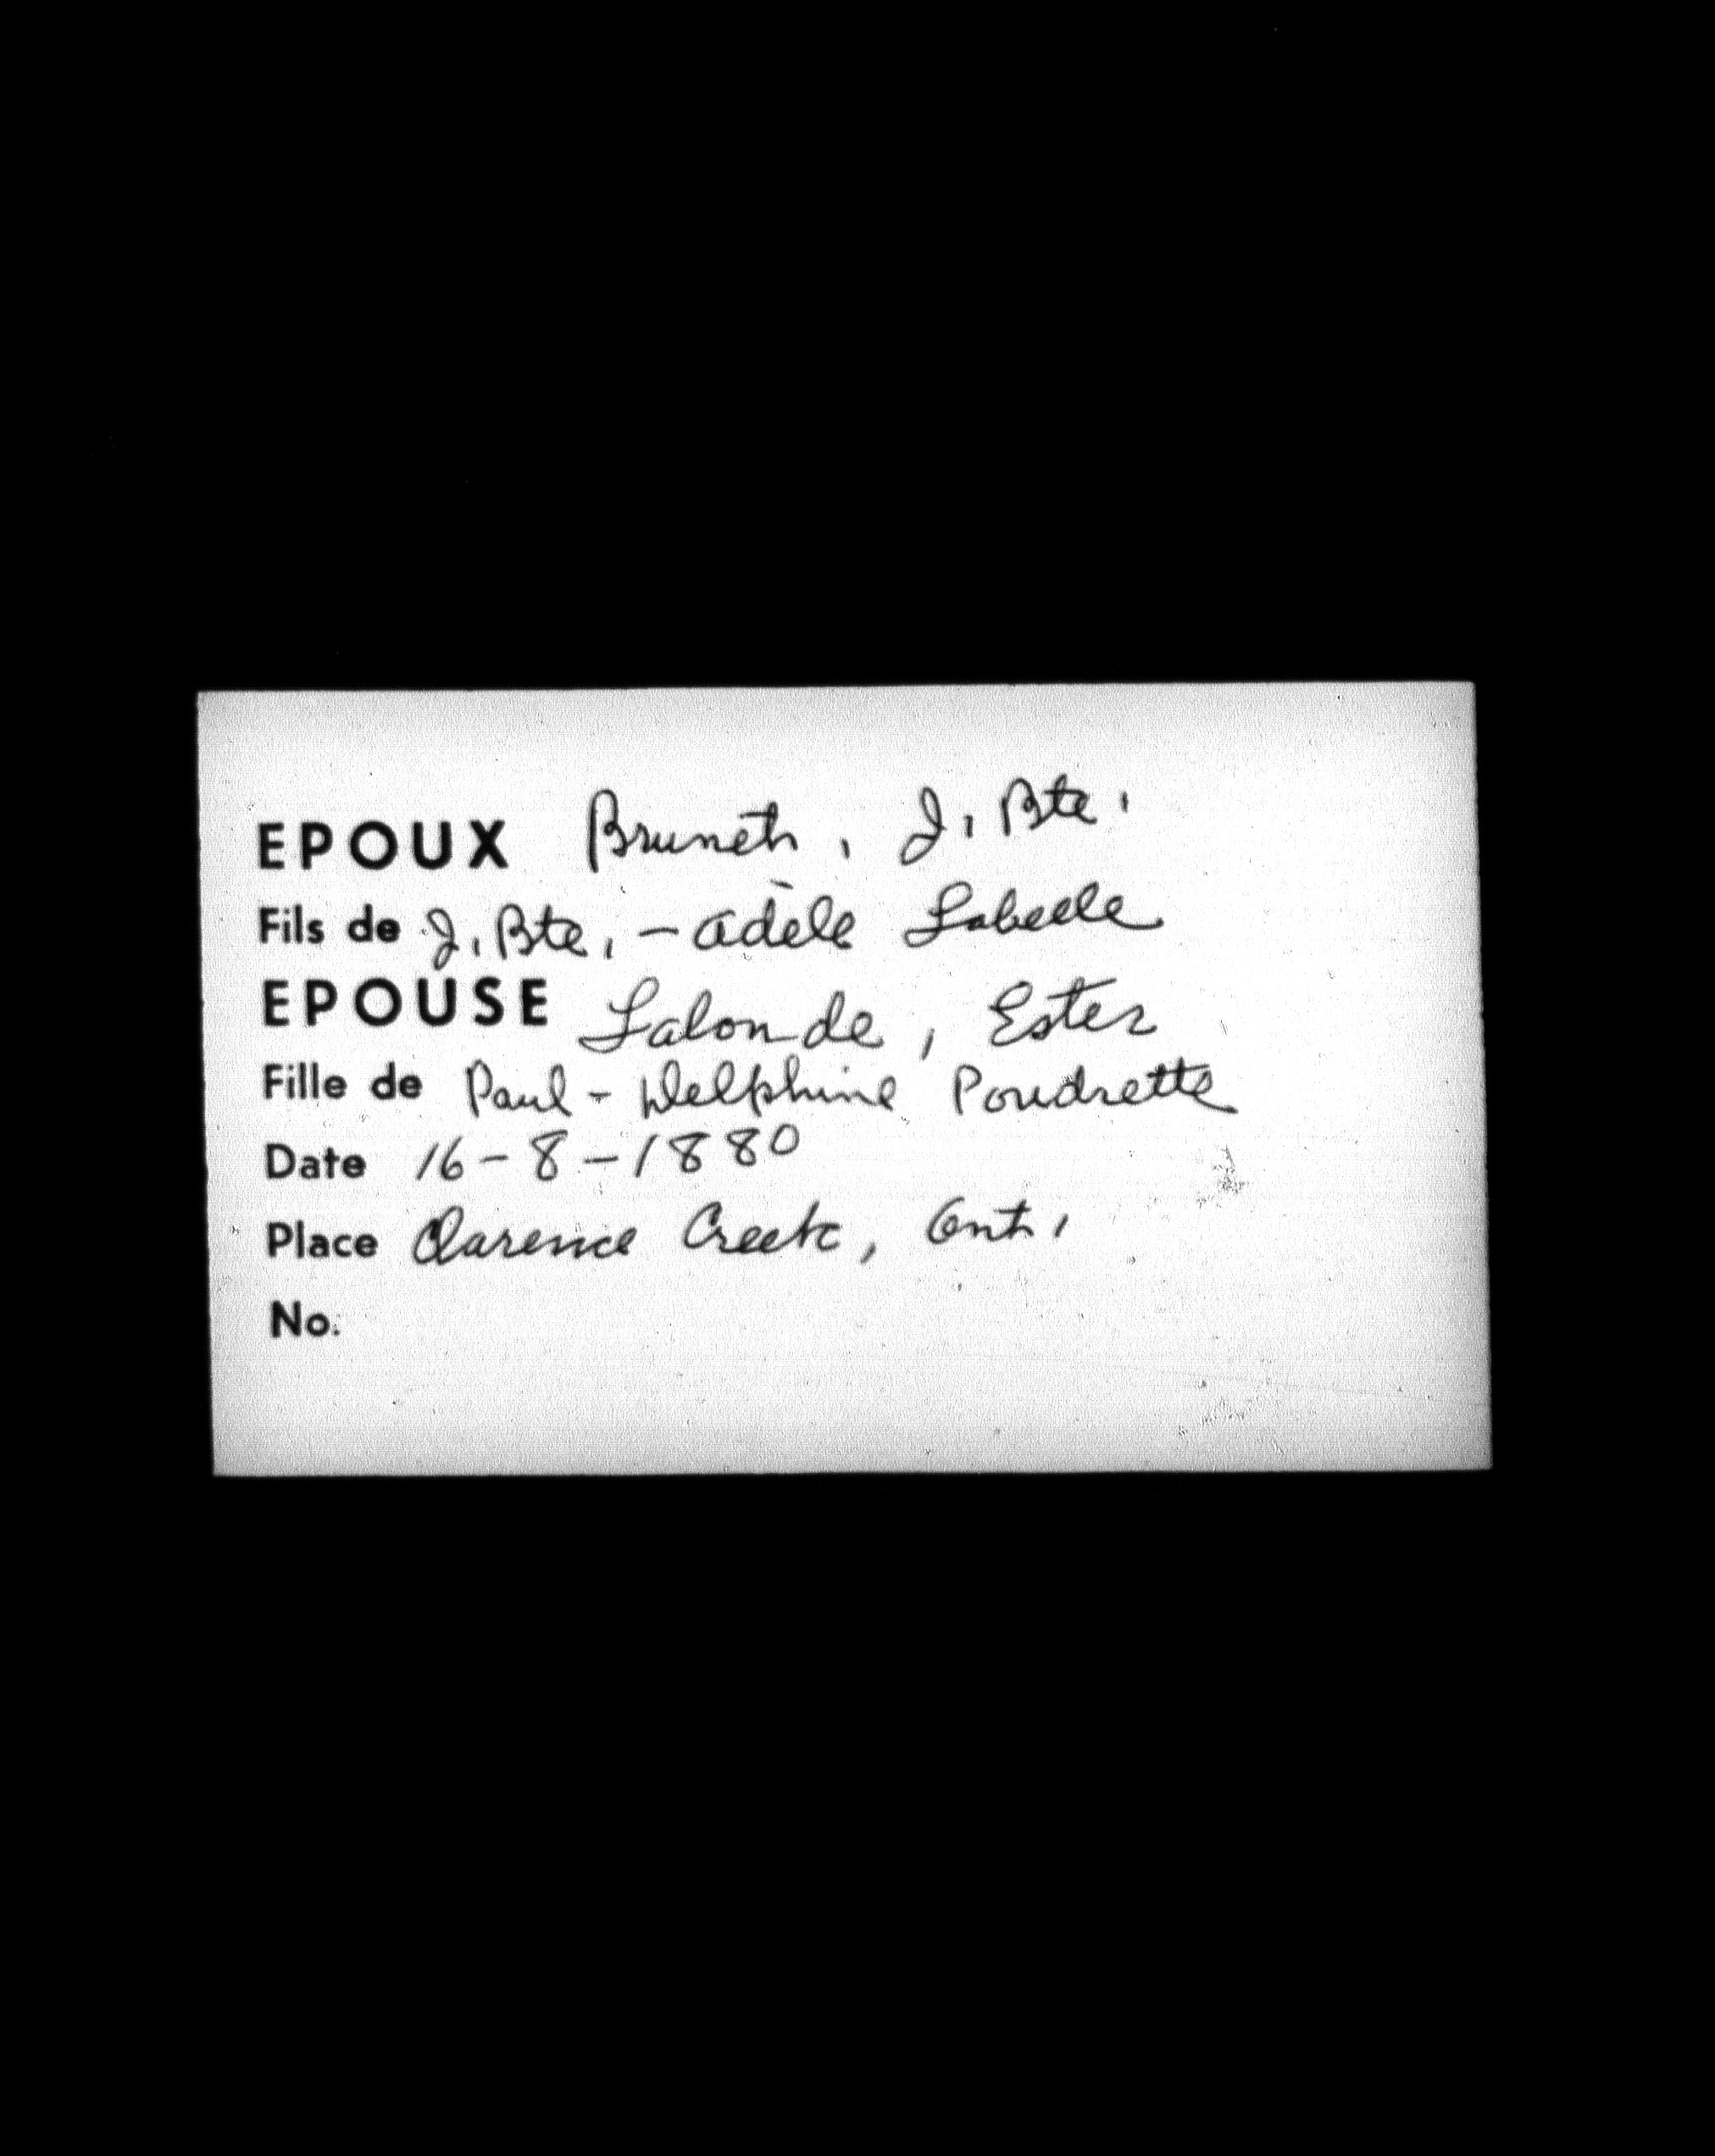 EPOUX Brunet, J. Bte.
Fils de J. Bte. - Adèle Labelle
EPOUSE Lalonde, Ester
Fille de Paul - Delphine Poudrette
Date 16-8-1880
Place Clarence Creek, Ont.
No.